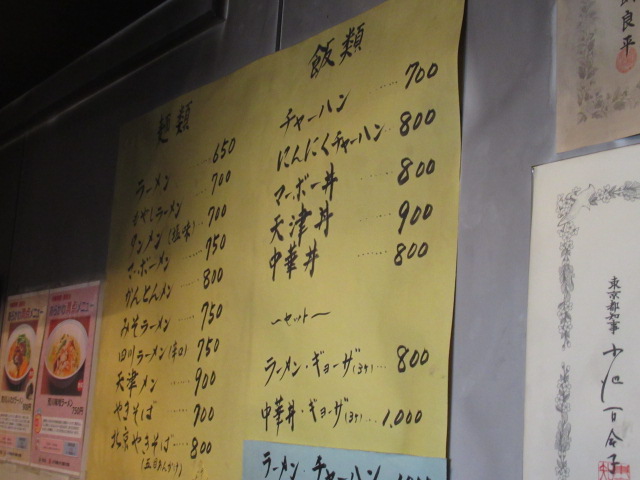 麺類
ラーメン……650
もやしラーメン 700
タンメン(塩味) 700
マーボーメン 750
かんとんメン 800
みそラーメン 750
四川ラーメン(辛口) 750
天津メン…… 900
やきそば…… 700
北京やきそば…… 800
(五目あんかけ)
飯類
チャーハン …… 700
にんにくチャーハン 800
マーボー丼 …… 800
天津丼 …… 900
中華丼 …… 800
〜セット〜
ラーメン・ギョーザ(3ケ)… 800
中華丼・ギョーザ(3ケ)… 1,000
ラーメン・チャーハン
東京都知事 小池百合子
良平
750円